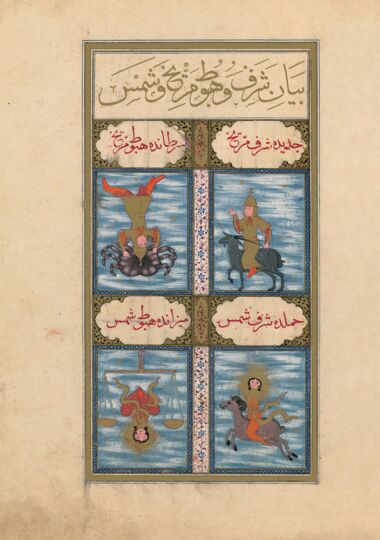 بيان شرف و هبوط مريخ و شمس
جديده شرف مريخ
سرطانده هبوط مريخ
حملده شرف شمس
ميزانده هبوط شمس